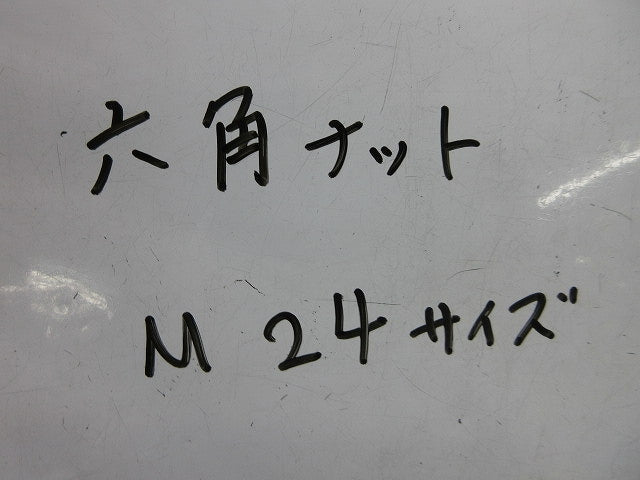 六角ナット
M 24サイズ